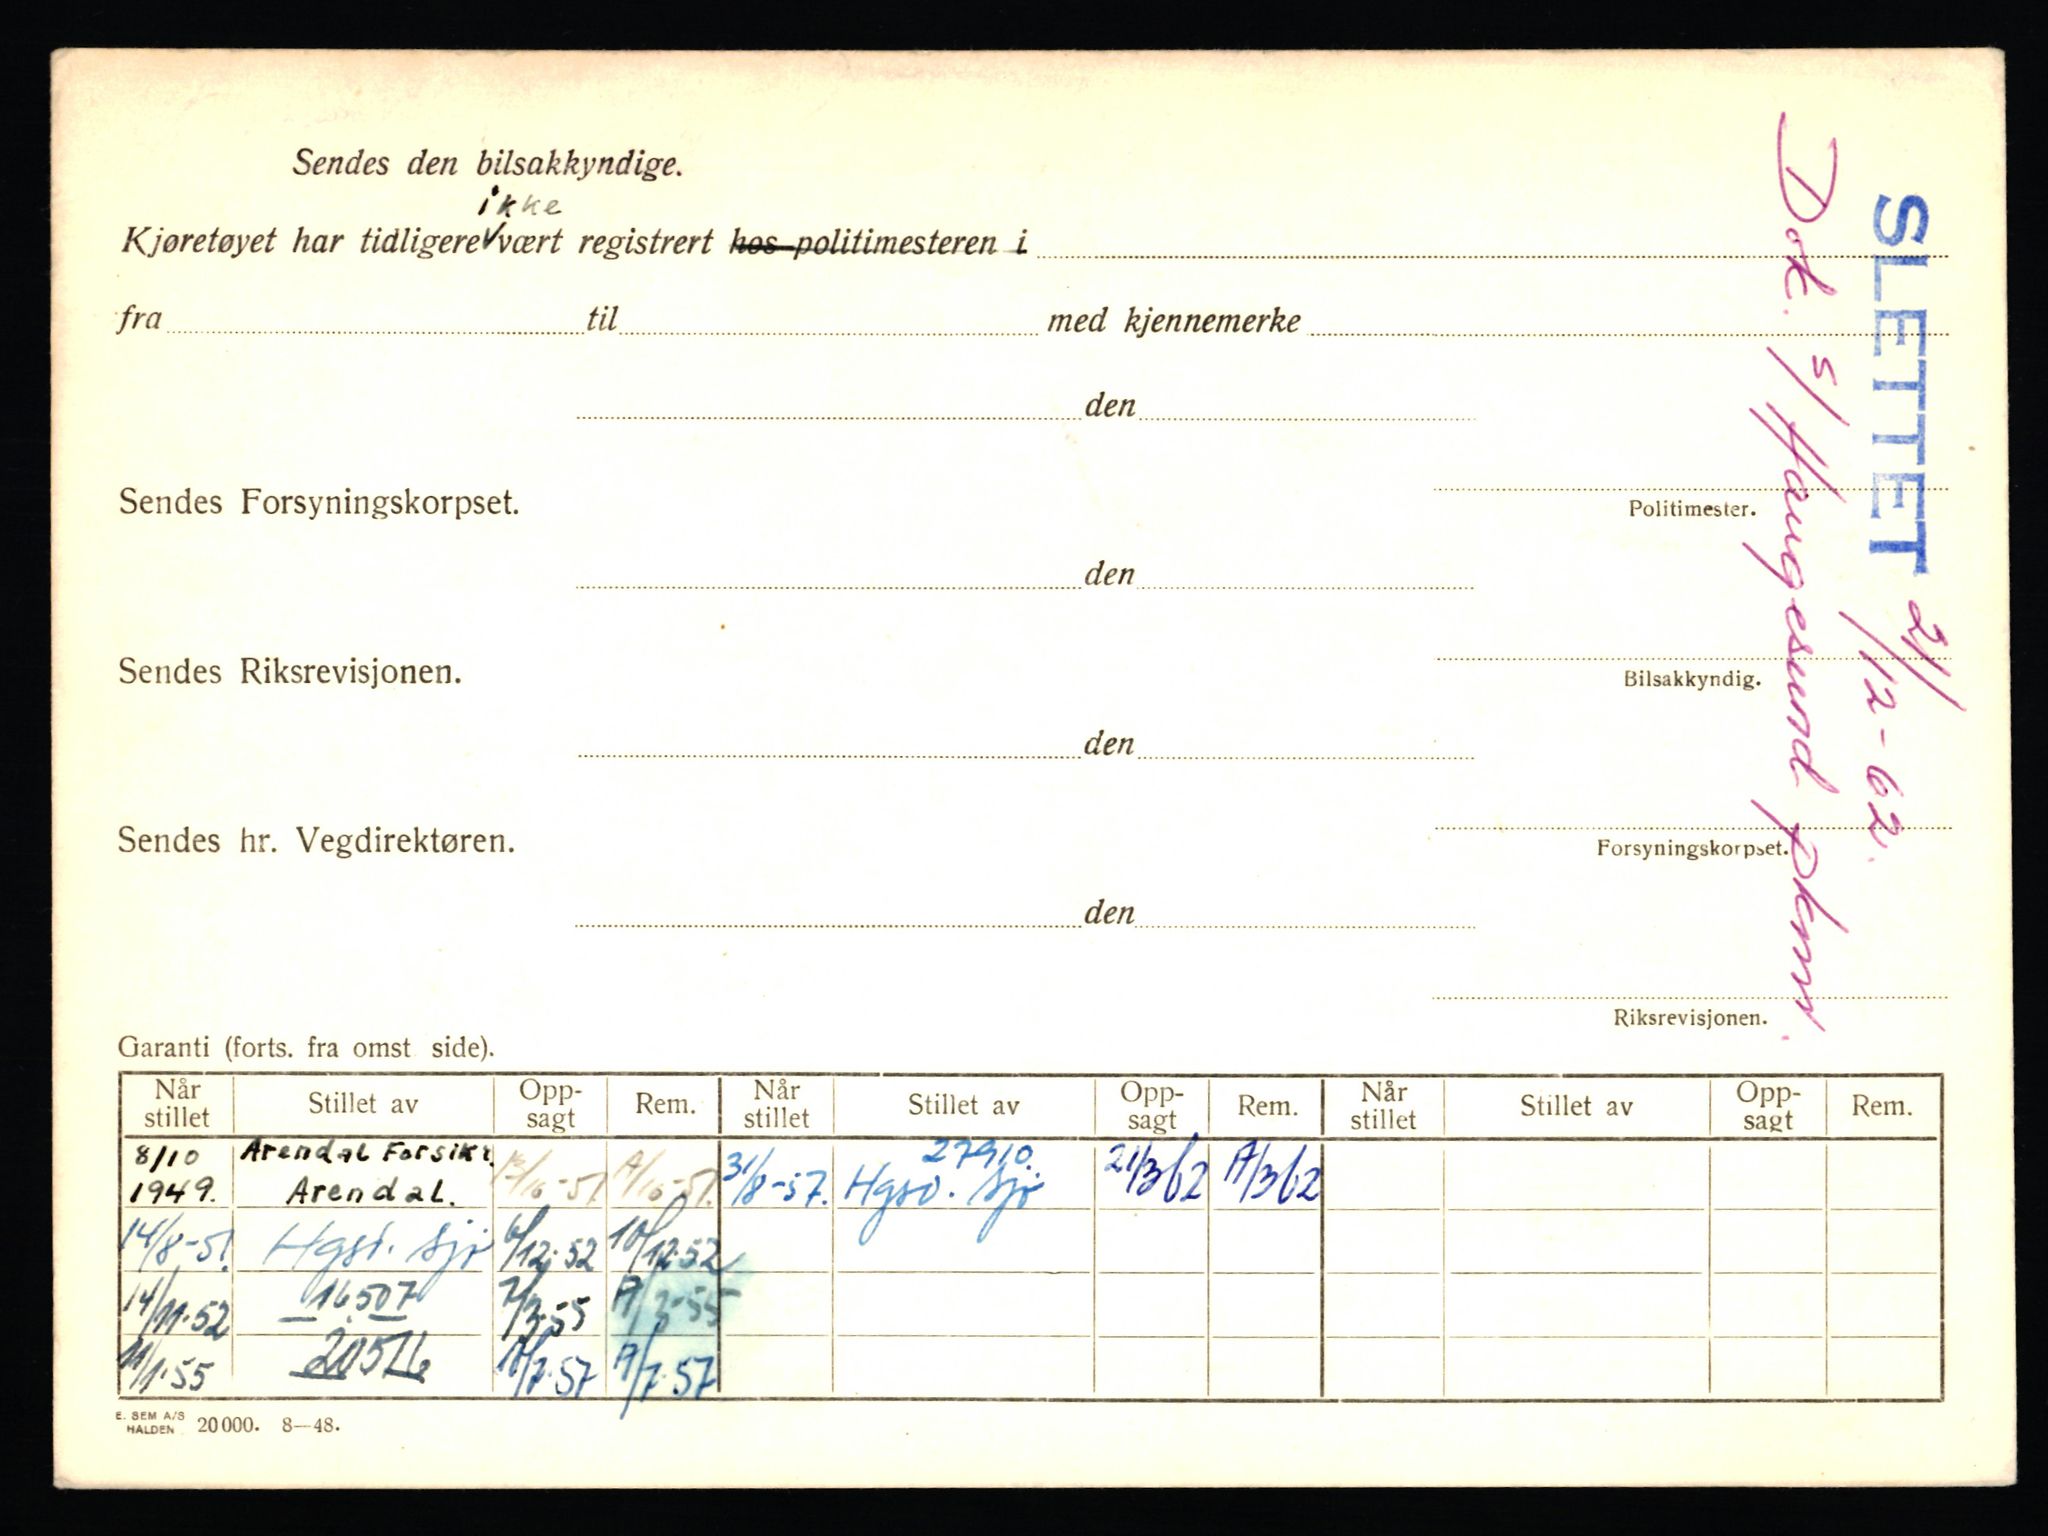 Sendes den bilsakkyndige.
ikke
Kjøretøyet har tidligere vært registrert hos politimesteren i
fra til med kjennemerke
den
Sendes Forsyningskorpset.
Politimester.
den
Sendes Riksrevisjonen.
Bilsakkyndig.
den
Sendes hr. Vegdirektøren.
Forsyningskorpset.
den
Riksrevisjonen.
SLETTET 21/12-62.
Dok. s/ Haugesund pkmr.
Garanti (forts. fra omst side).
Når stillet Stillet av Opp-sagt Rem. Når stillet Stillet av Opp-sagt Rem. Når stillet Stillet av Opp-sagt Rem.
8/10 Arendal Forsikr. 27910.
1949. Arendal. 31/8-57. Hgsd. Sjø 21/3 62 A/3 62
14/8-51. Hgsd. Sjø 6/12-52 10/12-52
14/11-52 — 16507 — 7/3-55 A/3-55
11/1-55 — 20576 — 10/7-57 A/7-57
E. SEM A/S
HALDEN 20000. 8—48.